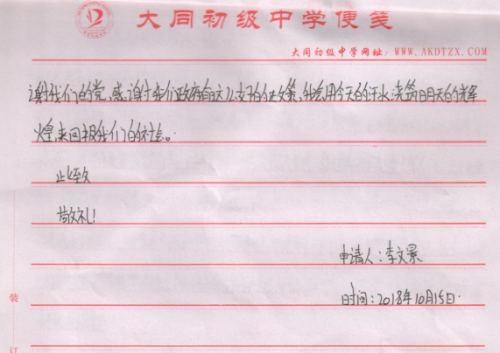 大同初级中学便笺
大同初级中学网址：WWW.AKDTZX.COM
谢我们的党，感谢我们政府有这么好的政策，我会用今天的汗水，浇筑明天的辉
煌，来回报我们的社会。
此致
敬礼！
申请人：李文景
时间：2018年10月15日.
装
订